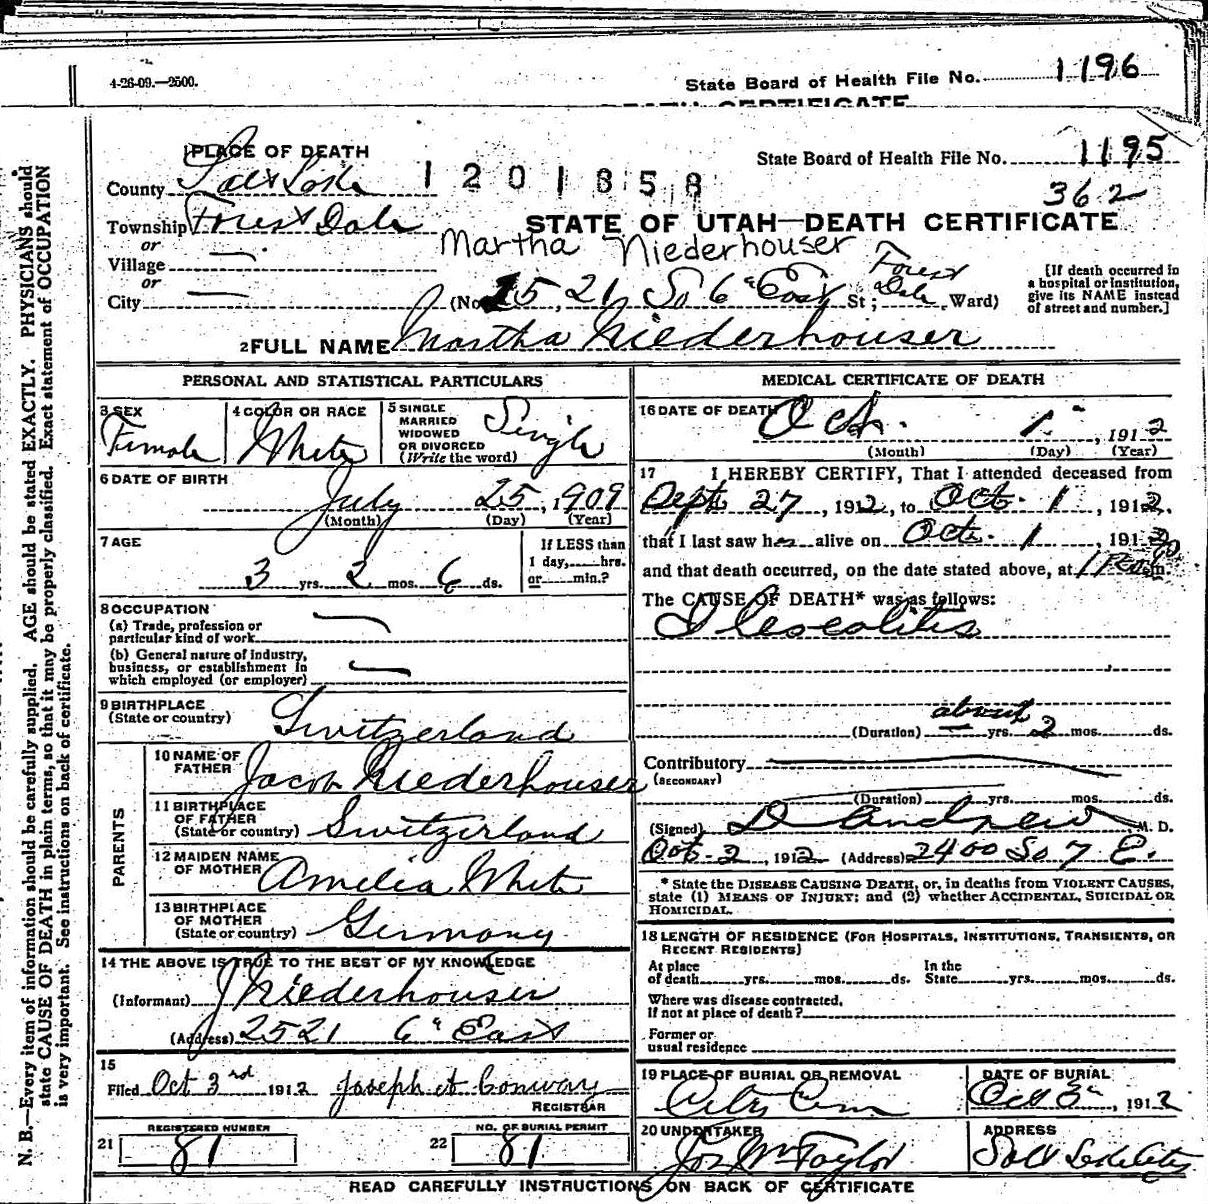 4-26-09.—2500.
State Board of Health File No. 1196
DEATH CERTIFICATE
1 PLACE OF DEATH
State Board of Health File No. 1195
County Salt Lake
1 2 0 1 8 5 8
362
Township Forest Dale
STATE OF UTAH—DEATH CERTIFICATE
or
Martha Niederhouser
Village
or
City
(No. 2521 So 6" East St; Forest Dale Ward)
[If death occurred in a hospital or institution, give its NAME instead of street and number.]
2 FULL NAME Martha Niederhouser
PERSONAL AND STATISTICAL PARTICULARS
3 SEX
Female
4 COLOR OR RACE
White
5 SINGLE
MARRIED
WIDOWED
OR DIVORCED
(Write the word)
Single
6 DATE OF BIRTH
July 25, 1909
(Month) (Day) (Year)
7 AGE
3 yrs. 2 mos. 6 ds.
If LESS than
1 day, hrs.
or min.?
8 OCCUPATION
(a) Trade, profession or
particular kind of work
(b) General nature of industry,
business, or establishment in
which employed (or employer)
9 BIRTHPLACE
(State or country)
Switzerland
PARENTS
10 NAME OF
FATHER
Jacob Niederhouser
11 BIRTHPLACE
OF FATHER
(State or country) Switzerland
12 MAIDEN NAME
OF MOTHER
Amelia White
13 BIRTHPLACE
OF MOTHER
(State or country) Germany
14 THE ABOVE IS TRUE TO THE BEST OF MY KNOWLEDGE
(Informant) J Niederhouser
(Address) 2521 6" East
15
Filed Oct 3rd 1912 Joseph A Conway
REGISTRAR
REGISTERED NUMBER
21 81
NO. OF BURIAL PERMIT
22 81
MEDICAL CERTIFICATE OF DEATH
16 DATE OF DEATH
Oct. 1, 1912
(Month) (Day) (Year)
17 I HEREBY CERTIFY, That I attended deceased from
Sept 27, 1912, to Oct. 1, 1912.
that I last saw her alive on Oct. 1, 1912
and that death occurred, on the date stated above, at 1 P.m.
The CAUSE OF DEATH* was as follows:
Ileocolitis
(Duration) yrs. about 2 mos. ds.
Contributory
(SECONDARY)
(Duration) yrs. mos. ds.
(Signed) D Andrew, M. D.
Oct-2, 1912 (Address) 2400 So 7 E.
* State the DISEASE CAUSING DEATH, or, in deaths from VIOLENT CAUSES,
state (1) MEANS OF INJURY; and (2) whether ACCIDENTAL, SUICIDAL OR
HOMICIDAL.
18 LENGTH OF RESIDENCE (FOR HOSPITALS, INSTITUTIONS, TRANSIENTS, OR
RECENT RESIDENTS)
At place
of death yrs. mos. ds.
In the
State yrs. mos. ds.
Where was disease contracted,
if not at place of death?
Former or
usual residence
19 PLACE OF BURIAL OR REMOVAL
City Cem
DATE OF BURIAL
Oct 3, 1912
20 UNDERTAKER
Jos Wm Taylor
ADDRESS
Salt Lake City
READ CAREFULLY INSTRUCTIONS ON BACK OF CERTIFICATE
N. B.—Every item of information should be carefully supplied. AGE should be stated EXACTLY. PHYSICIANS should
state CAUSE OF DEATH in plain terms, so that it may be properly classified. Exact statement of OCCUPATION
is very important. See instructions on back of certificate.